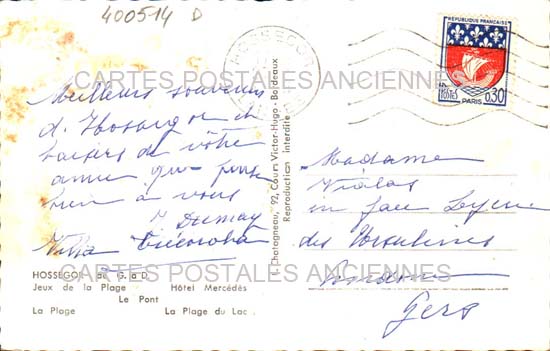 400514 D
HOSSEGOR
REPUBLIQUE FRANÇAISE
POSTES
PARIS 0,30
CARTES POSTALES ANCIENNES
CARTES POSTALES ANCIENNES
CARTES POSTALES ANCIENNES
Meilleurs souvenirs
d'Hossegor et
baisers de vôtre
amie qui pense
bien à vous
HOSSEGOR de G. à D.
Jeux de la Plage Hôtel Mercédès
Le Pont
La Plage La Plage du Lac
I. Chatagneau, 92, Cours Victor-Hugo - Bordeaux
Reproduction interdite
Madame
en face
des Ursulines
Gers